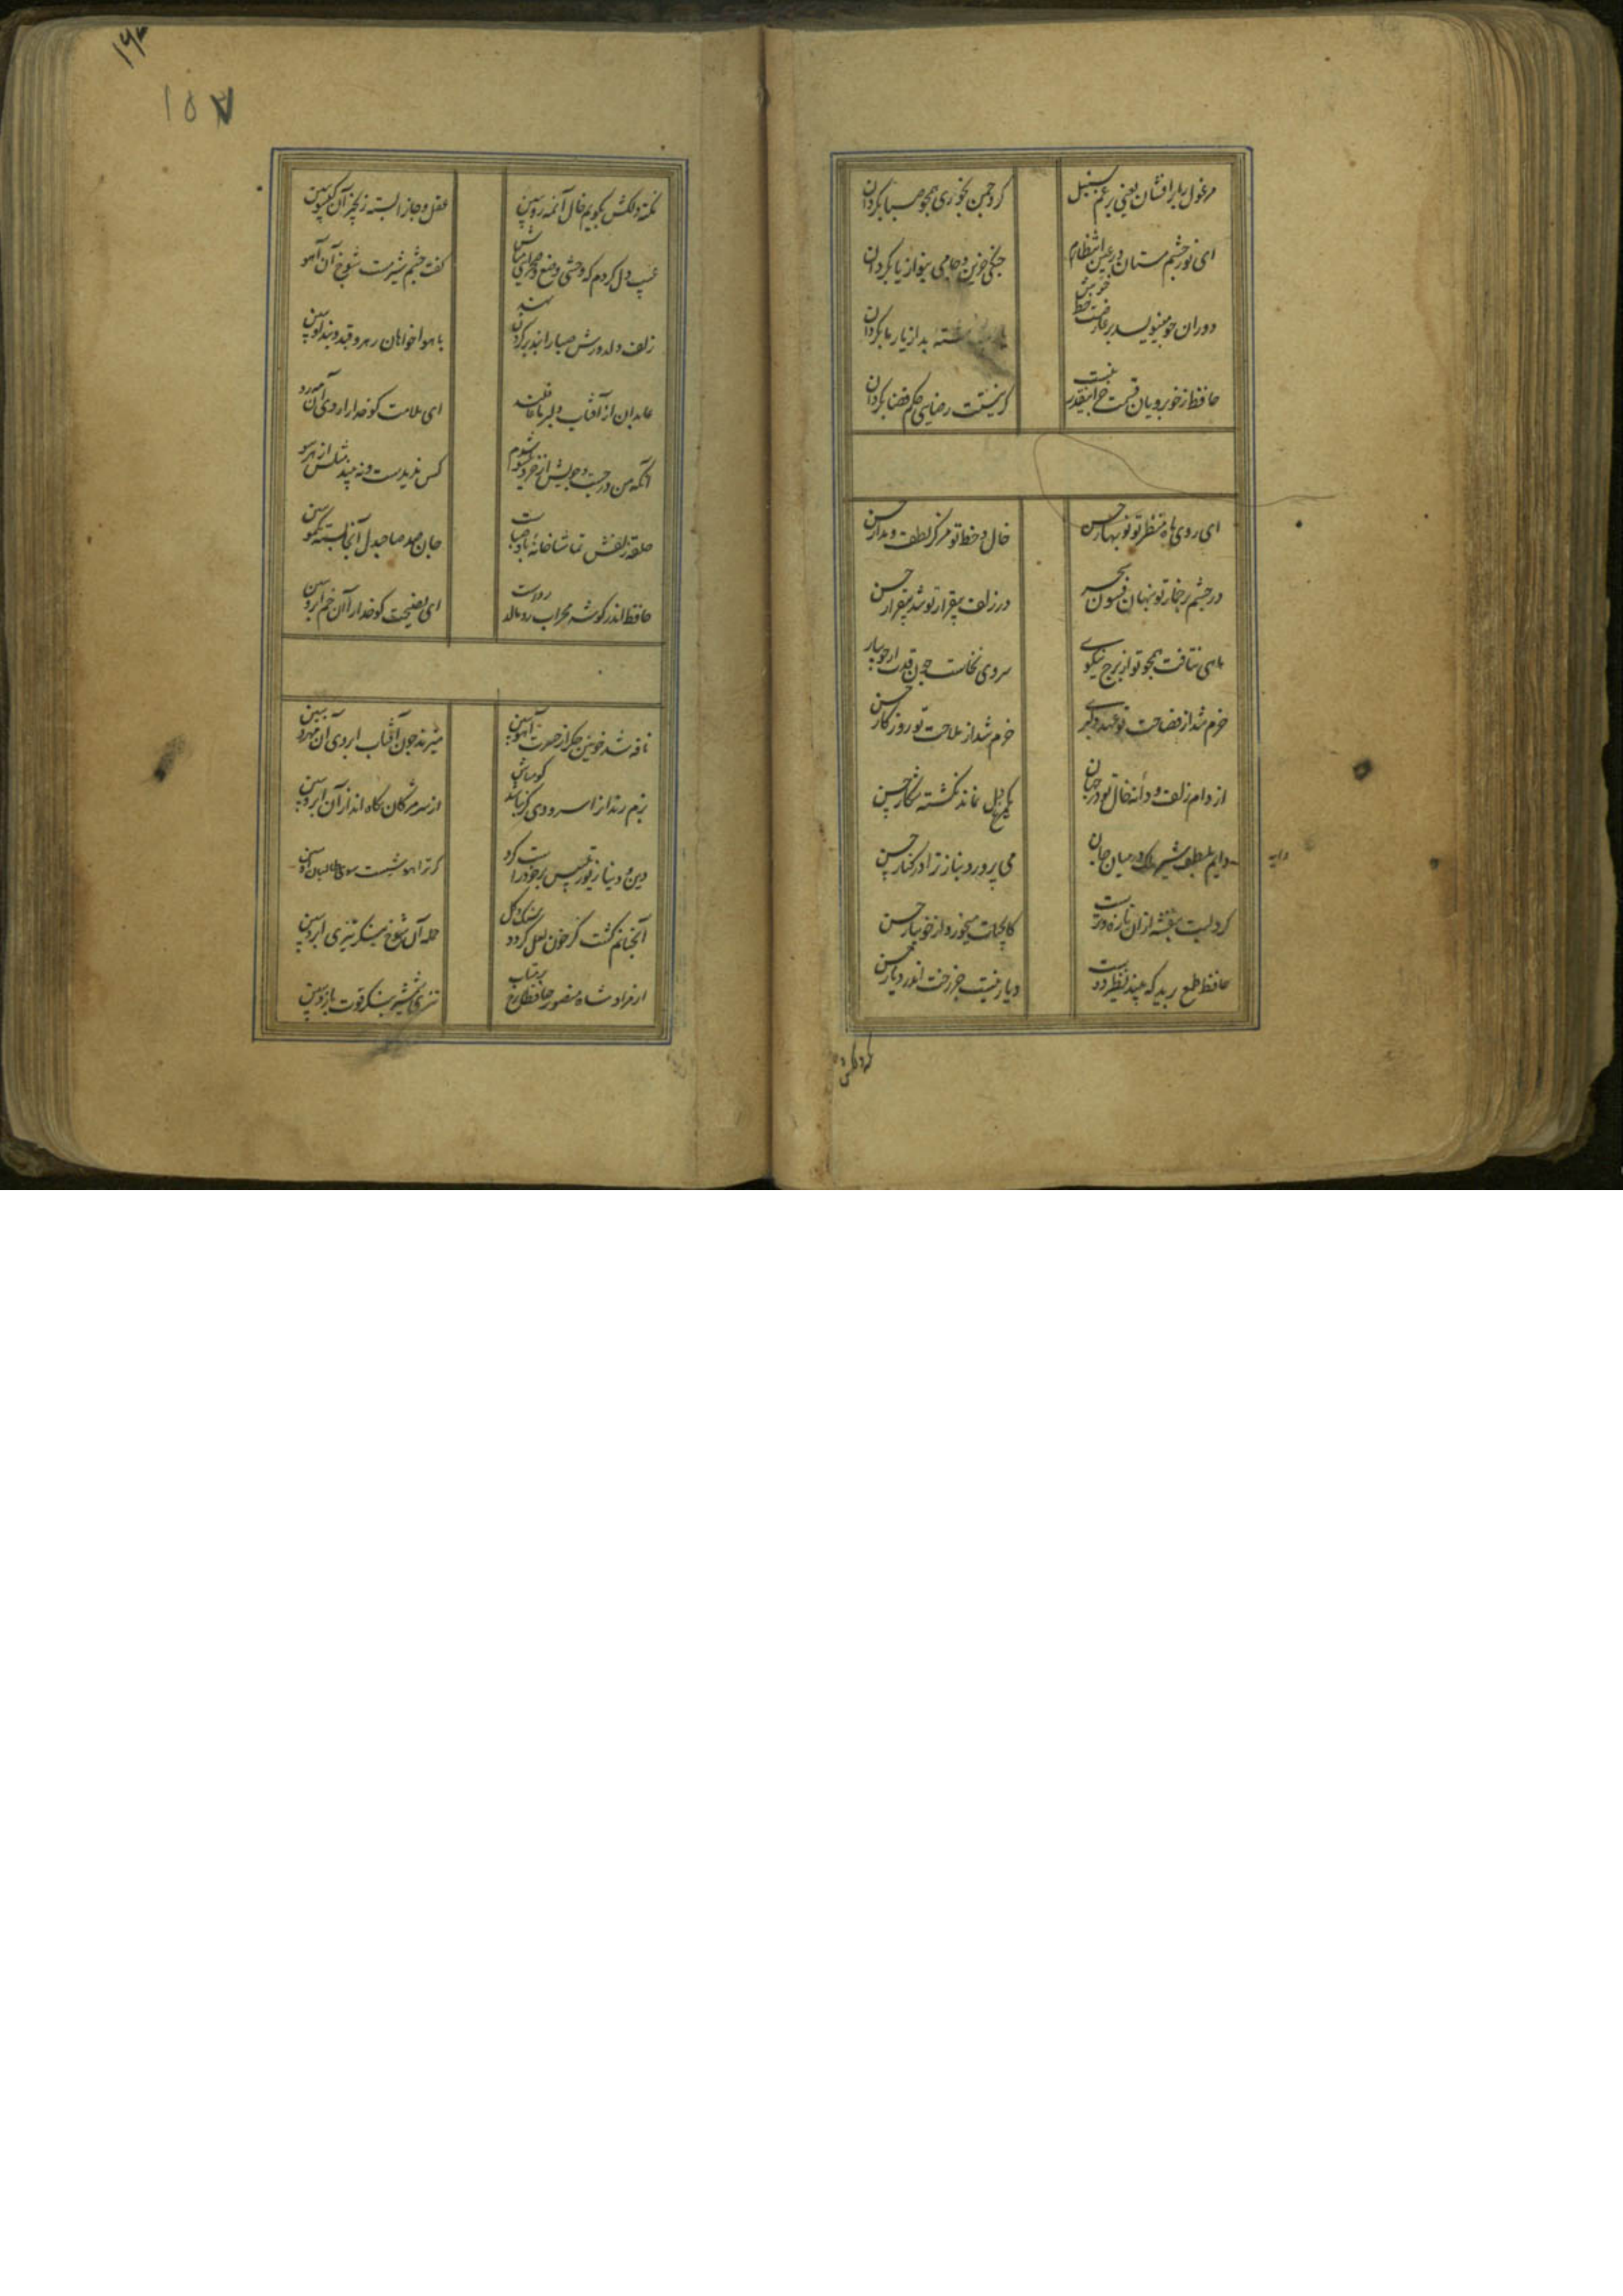 مرغول را برافشان یعنی برغم سنبل
کرد چمن بخوری همچو صبا بکردان
ای نور چشم مستان در عین انتظارم
چنکی حزین و جامی بنواز یا بکردان
دوران چو مینویسد بر عارضت خطی خوش
یارب نوشته بد از یار ما بکردان
حافظ ز خوبرویان قسمت جز اینقدر نیست
کر نیستت رضایی حکم قضا بکردان
ای روی ماه منظر تو نوبهار حسن
خال و خط تو مرکز لطف و مدار حسن
در چشم پرخمار تو پنهان فسون سحر
در زلف بیقرار تو شد بیقرار حسن
ماهی نتافت همچو تو از برج نیکویی
سروی نخاست چون قدت از جویبار حسن
خرم شد از فصاحت تو عهد دلبری
خرم شد از ملاحت تو روزکار حسن
از دام زلف و دانه خال تو در جهان
یک مرغ دل نماند نکشته شکار حسن
دایم بلطف دایه میان جان
می پرورد بناز ترا در کنار حسن
کرد لبت بنفشه از ان تازه و ترست
کاب حیات میخورد از جویبار حسن
حافظ طمع برید که بیند نظیر دوست
دیار نیست جز رخت اندر دیار حسن
دایه
نکته دلکش بکویم خال آن مه رو ببین
عقل و جانرا بسته زنجیر آن کیسو ببین
عیب دل کردم که وحشی وضع و صحرایی مباش
کفت چشم شیرمست شوخ آن آهو
زلف دلدزدش صبا را بند بر کردن نهد
با هواخواهان رهرو قید و بند او ببین
عابدان از آفتاب دلبر ما غافلند
ای ملامت کو خدا را روی آن مه رو
آنکه من در جست و جویش از خرد یکسو شدم
کس ندیدست و نه بیند مثلش از هر سو
حلقه زلفش تماشاخانه باد صباست
جان صد صاحبدل آنجا بسته یک مو ببین
حافظ اندر کوشه محراب رو مالد رواست
ای نصیحت کو خدا را آن خم ابرو ببین
نافه شد خونین جکر از حسرت آهو ببین
میبرند چون آفتاب از روی آن مهرو ببین
بزم رندانرا سرودی کر نباشد کو مباش
از سر مژکان نکاه انداز آن ابرو ببین
دین و دنیا زیور
آنچنانم کشت کز خون لعل کردد سنک و کل
حمله آن شوخ بنکر تیزی ابرو ببین
از مراد شاه منصور حافظا رخ بر متاب
تیزی شمشیر بنکر قوت بازو ببین
۱۵۷